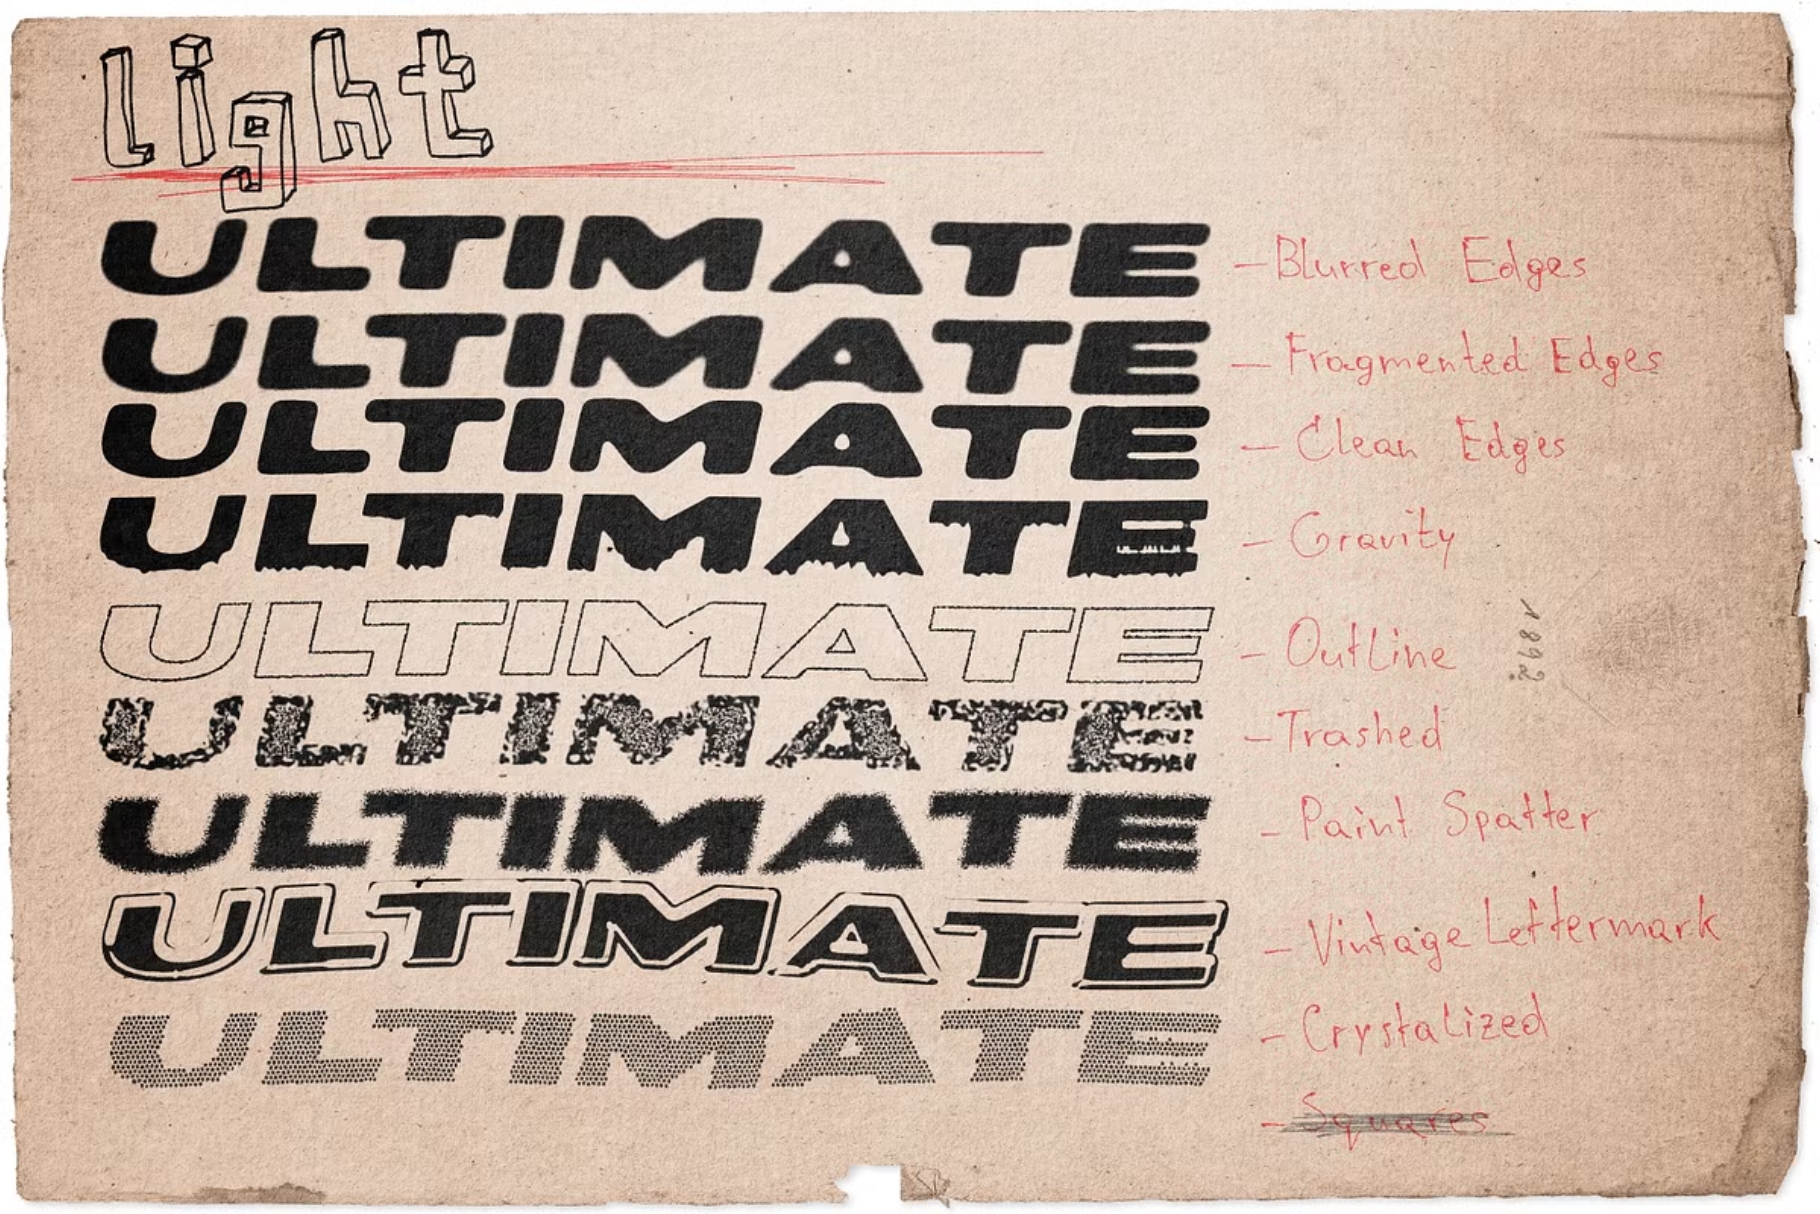 light
ULTIMATE - Blurred Edges
ULTIMATE - Fragmented Edges
ULTIMATE - Clean Edges
ULTIMATE - Gravity
ULTIMATE - OutLine
1892
ULTIMATE - Trashed
ULTIMATE - Paint Spatter
ULTIMATE - Vintage Lettermark
ULTIMATE - CrystaLized
- Squares